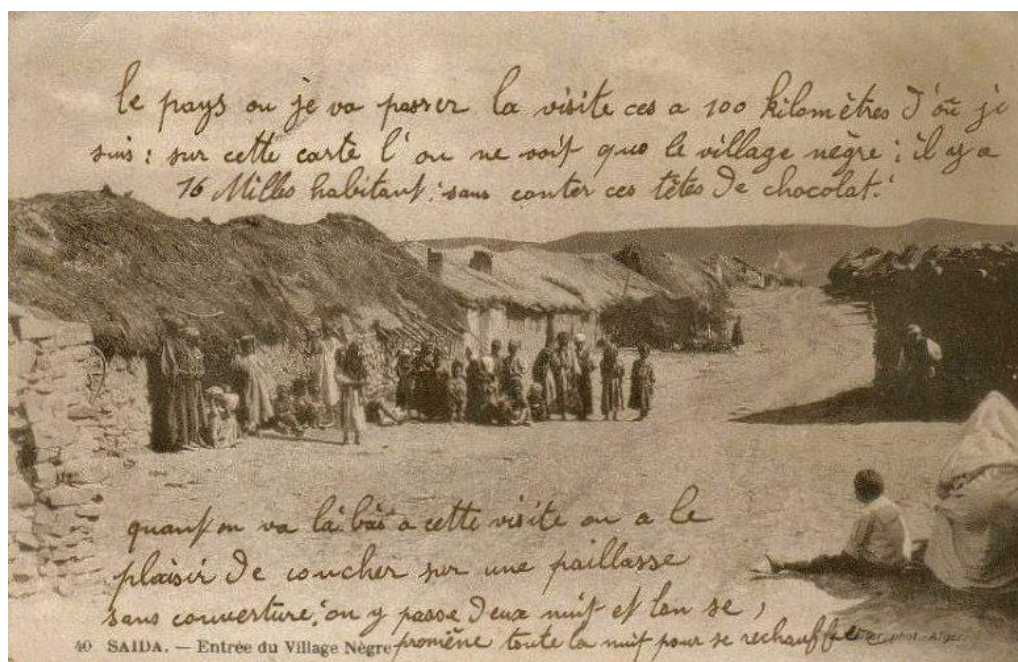 le pays ou je va passer la visite ces a 100 kilomètres d'où je
suis : sur cette carte l'on ne voit que le village nègre ; il y a
16 Milles habitant ; sans conter ces têtes de chocolat.
quant on va là bàs a cette visite on a le
plaisir de coucher sur une paillasse
sans couverture, on y passe deux nuit et lon se,
promène toute la nuit pour se rechauffer
40 SAIDA. — Entrée du Village Nègre
phot. Alger